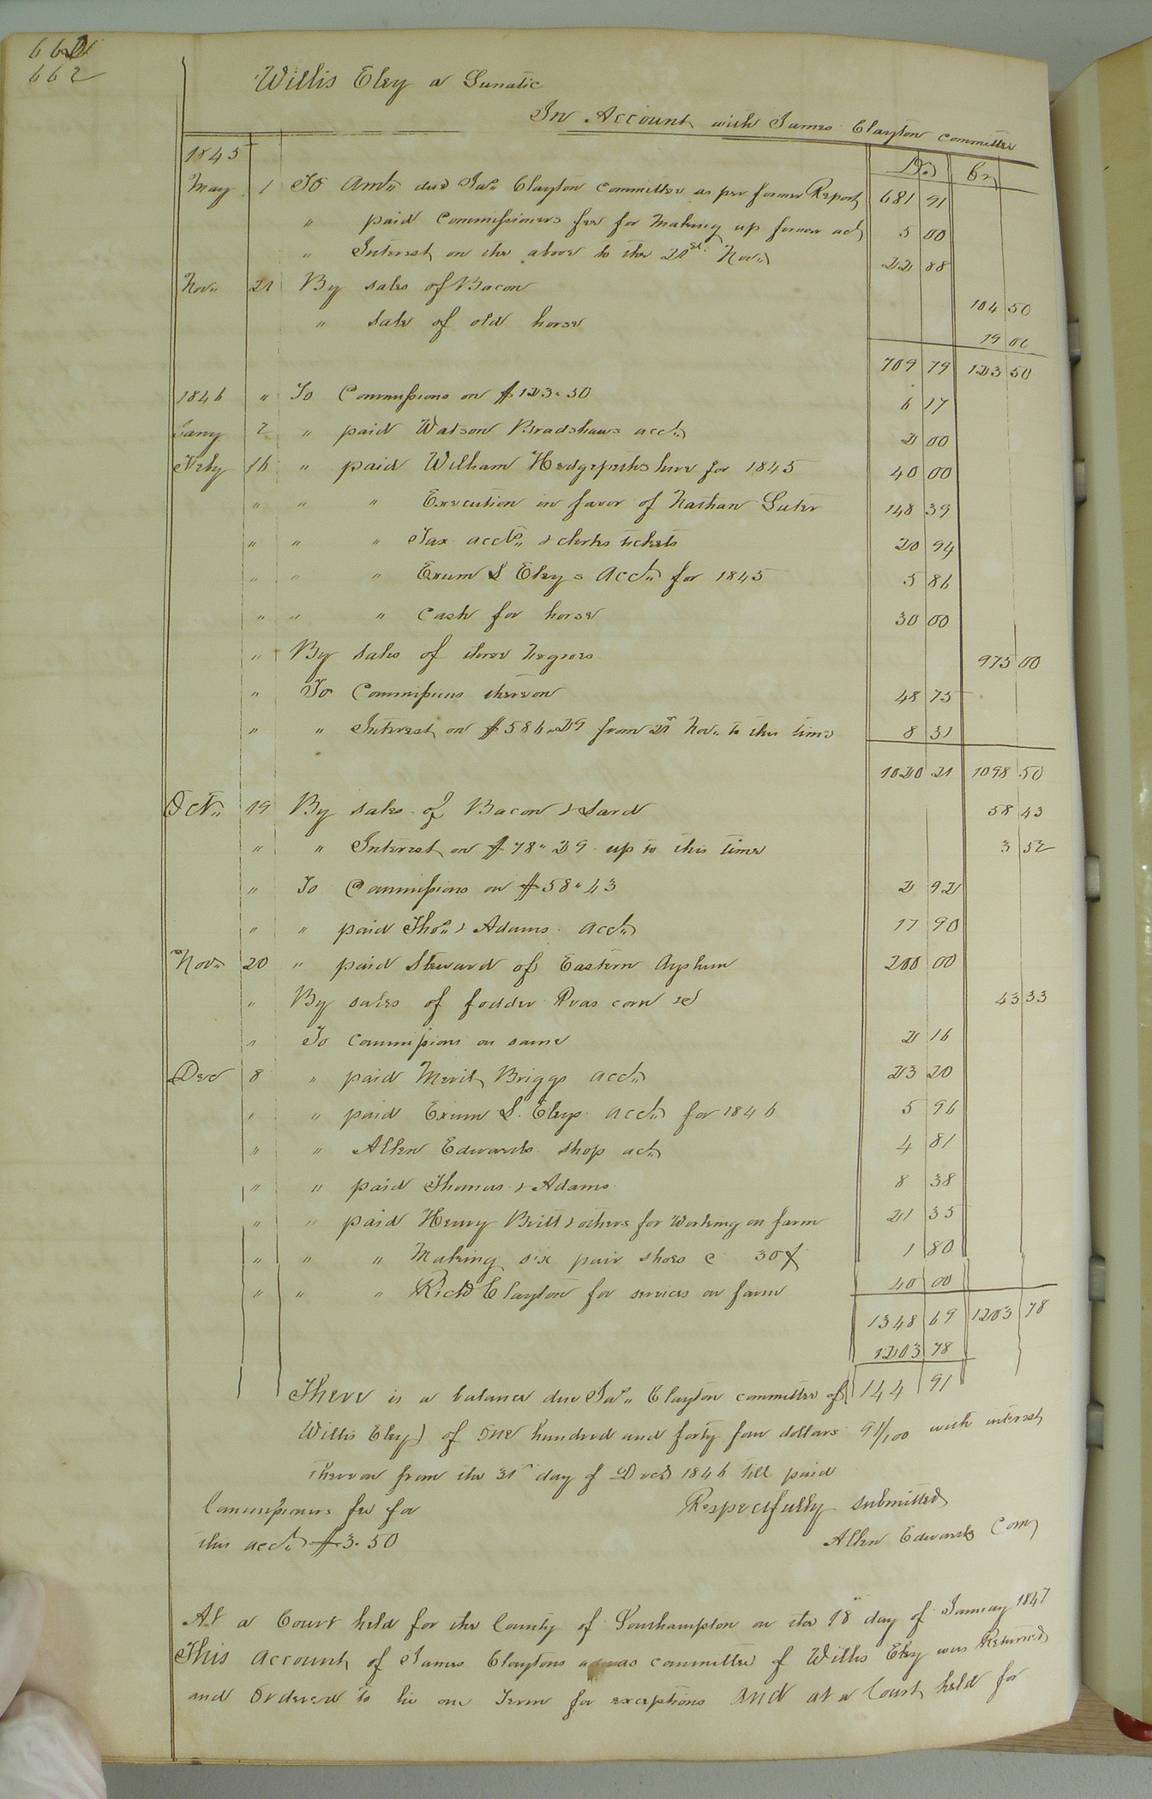 662
Willis Eley a Lunatic
In Account with James Clayton committee
1845 Dr Cr
May 1 To Amt. due Jas. Clayton committee as per former Report 681 91
" paid Commissioners fee for making up former act 5 00
" Interest on the above to the 21st Nov. 22 88
Nov. 21 By sales of Bacon 104 50
" Sale of old horse 19 00
709 79 123 50
1846 " To Commissions on $123.50 6 17
Jany 2 " paid Watson Bradshaws acct. 2 00
Feby 16 " paid William Hedgepeths hire for 1845 40 00
" " " Execution in favor of Nathan 148 39
" " " Tax acct. & clerks tickets 20 94
" " " Exum L Eley's acct. for 1845 5 86
" " " Cash for horse 30 00
" By sales of three negroes 975 00
" To Commissions thereon 48 75
" " Interest on $586.29 from 21st Nov. to this time 8 31
1020 21 1098 50
Oct. 19 By sales of Bacon & Lard 58 43
" " Interest on $78.29 up to this time 3 52
" To Commissions on $58.43 2 92
" " paid Thos. & Adams acct. 17 90
Nov. 20 " paid Steward of Eastern Asylum 200 00
" By sales of fodder Peas corn &c 43 33
" To commissions on same 2 16
Dec 8 " paid Merit Briggs acct. 23 20
" " paid Exum L. Eleys acct. for 1846 5 96
" " Allen Edwards shop act. 4 81
" " paid Thomas & Adams 8 38
" " paid Henry Britt & others for working on farm 21 35
" " " Making six pair shoes @ 30¢ 1 80
" " " Richd Clayton for services on farm 40 00
1348 69 1203 78
1203 78
There is a balance due Jas. Clayton committee of 144 91
Willis Eley of one hundred and forty four dollars 91/100 with interest
thereon from the 31st day of Decr 1846 till paid
Commissioners fee for Respectfully submitted
this acct. $3.50 Allen Edwards Com,
At a Court held for the County of Southampton on the 18th day of January 1847
This account of James Claytons as committee of Willis Eley was Returned
and ordered to lie one Term for exceptions and at a Court held for